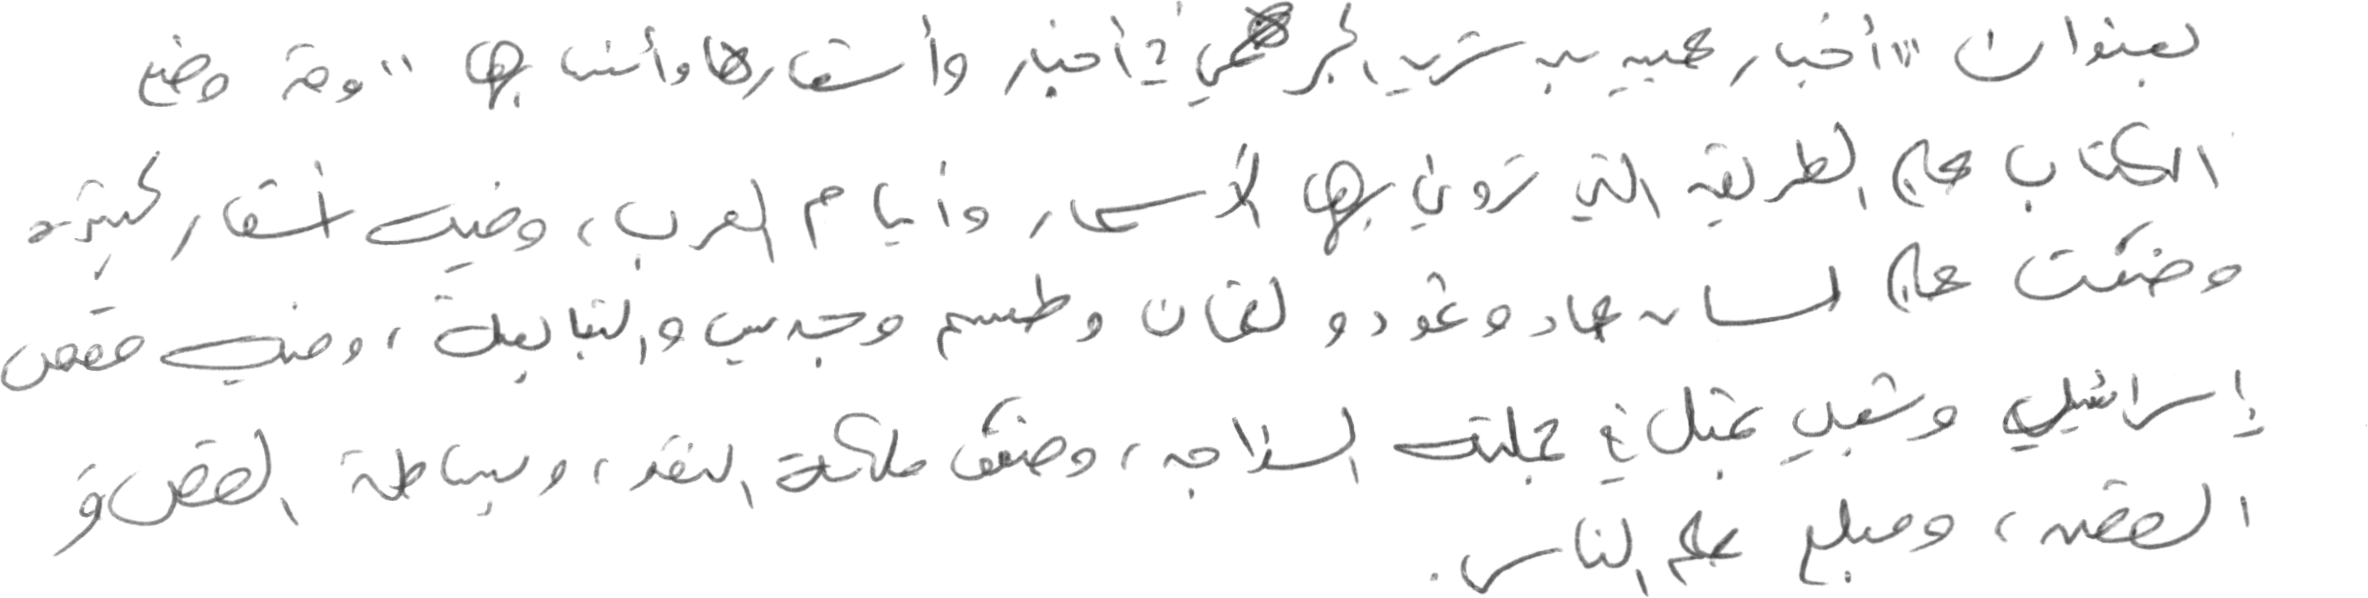 بعنوان "أخبار عبيد بن شرية الجرهمي في أخبار وأشعارها وأنسابها" وقد وضع
الكتاب على الطريقة التي تروى بها الأسمار وأيام العرب، وفيه أشعار كثيرة
وضعت على لسان عاد وثمود ولقمان وطسم وجديس والتبابعة، وفيه قصص
إسرائيلي وشعبي يمثل في جملته السذاجة، وضعف ملكة النقد، وبساطة القصص و
القصد، ومبلغ علم الناس.